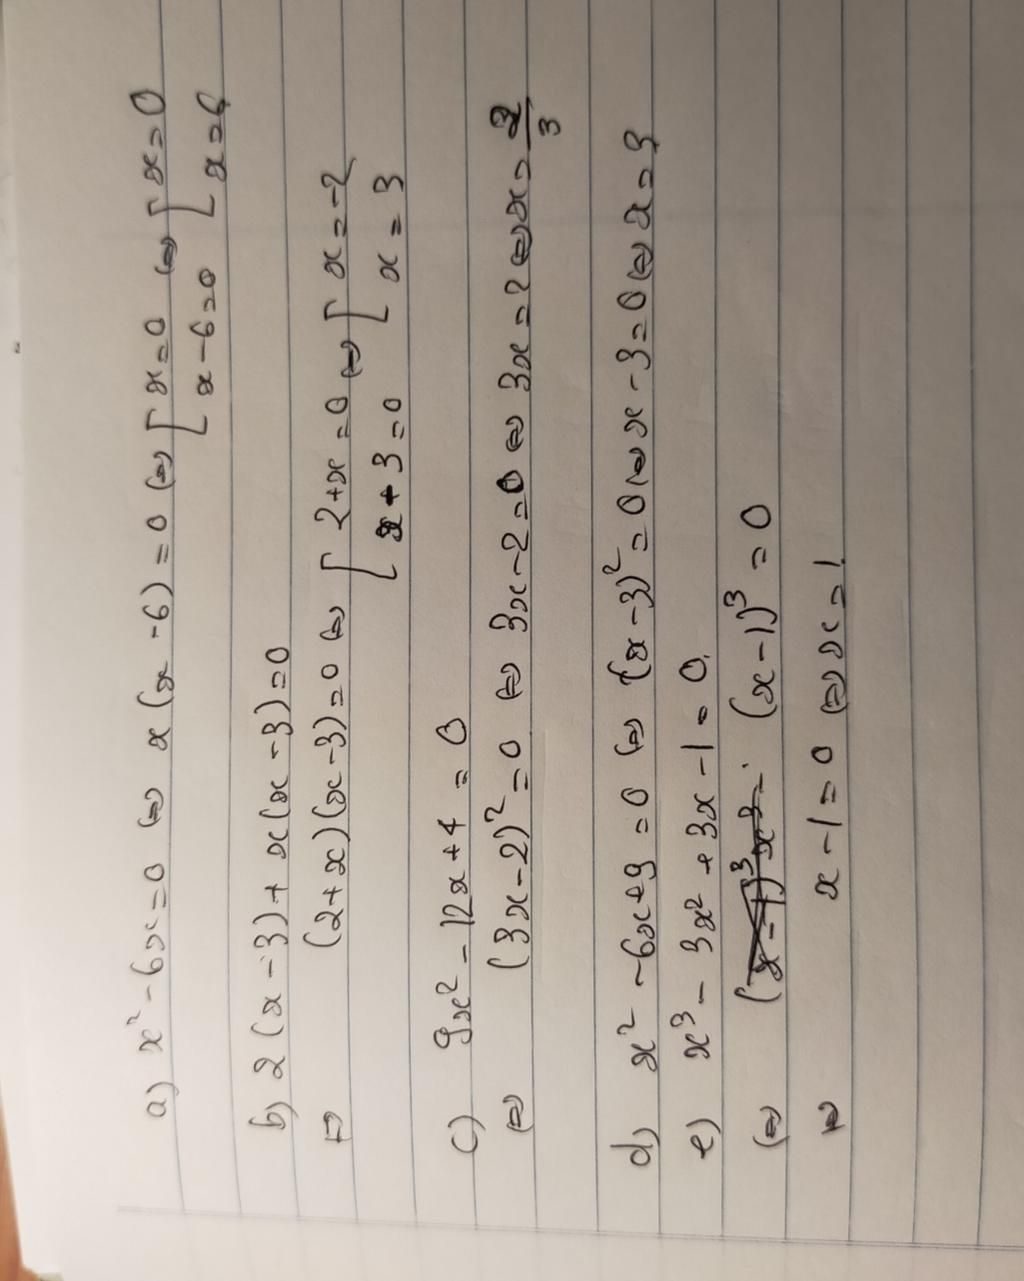 a) x² - 6x = 0 ⇔ x(x - 6) = 0 ⇔ [ x = 0 ⇔ [ x = 0
[ x - 6 = 0 [ x = 6
b) 2(x - 3) + x(x - 3) = 0
⇔ (2 + x)(x - 3) = 0 ⇔ [ 2 + x = 0 ⇔ [ x = -2
[ x + 3 = 0 [ x = 3
c) 9x² - 12x + 4 = 0
⇔ (3x - 2)² = 0 ⇔ 3x - 2 = 0 ⇔ 3x = 2 ⇔ x = 2/3
d) x² - 6x + 9 = 0 ⇔ (x - 3)² = 0 ⇔ x - 3 = 0 ⇔ x = 3
e) x³ - 3x² + 3x - 1 = 0
⇔ (x - 1)³ = 0
⇔ x - 1 = 0 ⇔ x = 1